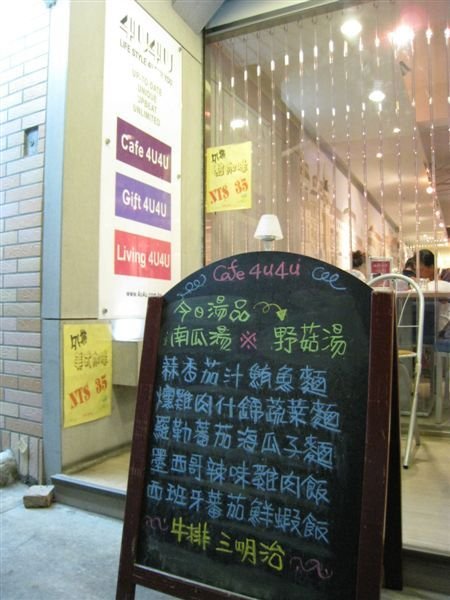 4U4U
LIFE STYLE 4U YOU
UP-TO-DATE
UNIQUE
UPBEAT
UNLIMITED
Cafe 4U4U
Gift 4U4U
Living 4U4U
外帶
NT$ 35
外帶
美式咖啡
NT$ 35
Cafe 4u4u
今日湯品
南瓜湯 ※ 野菇湯
蒜香茄汁鮪魚麵
燻雞肉什錦蔬菜麵
羅勒蕃茄海瓜子麵
墨西哥辣味雞肉飯
西班牙蕃茄鮮蝦飯
牛排 三明治